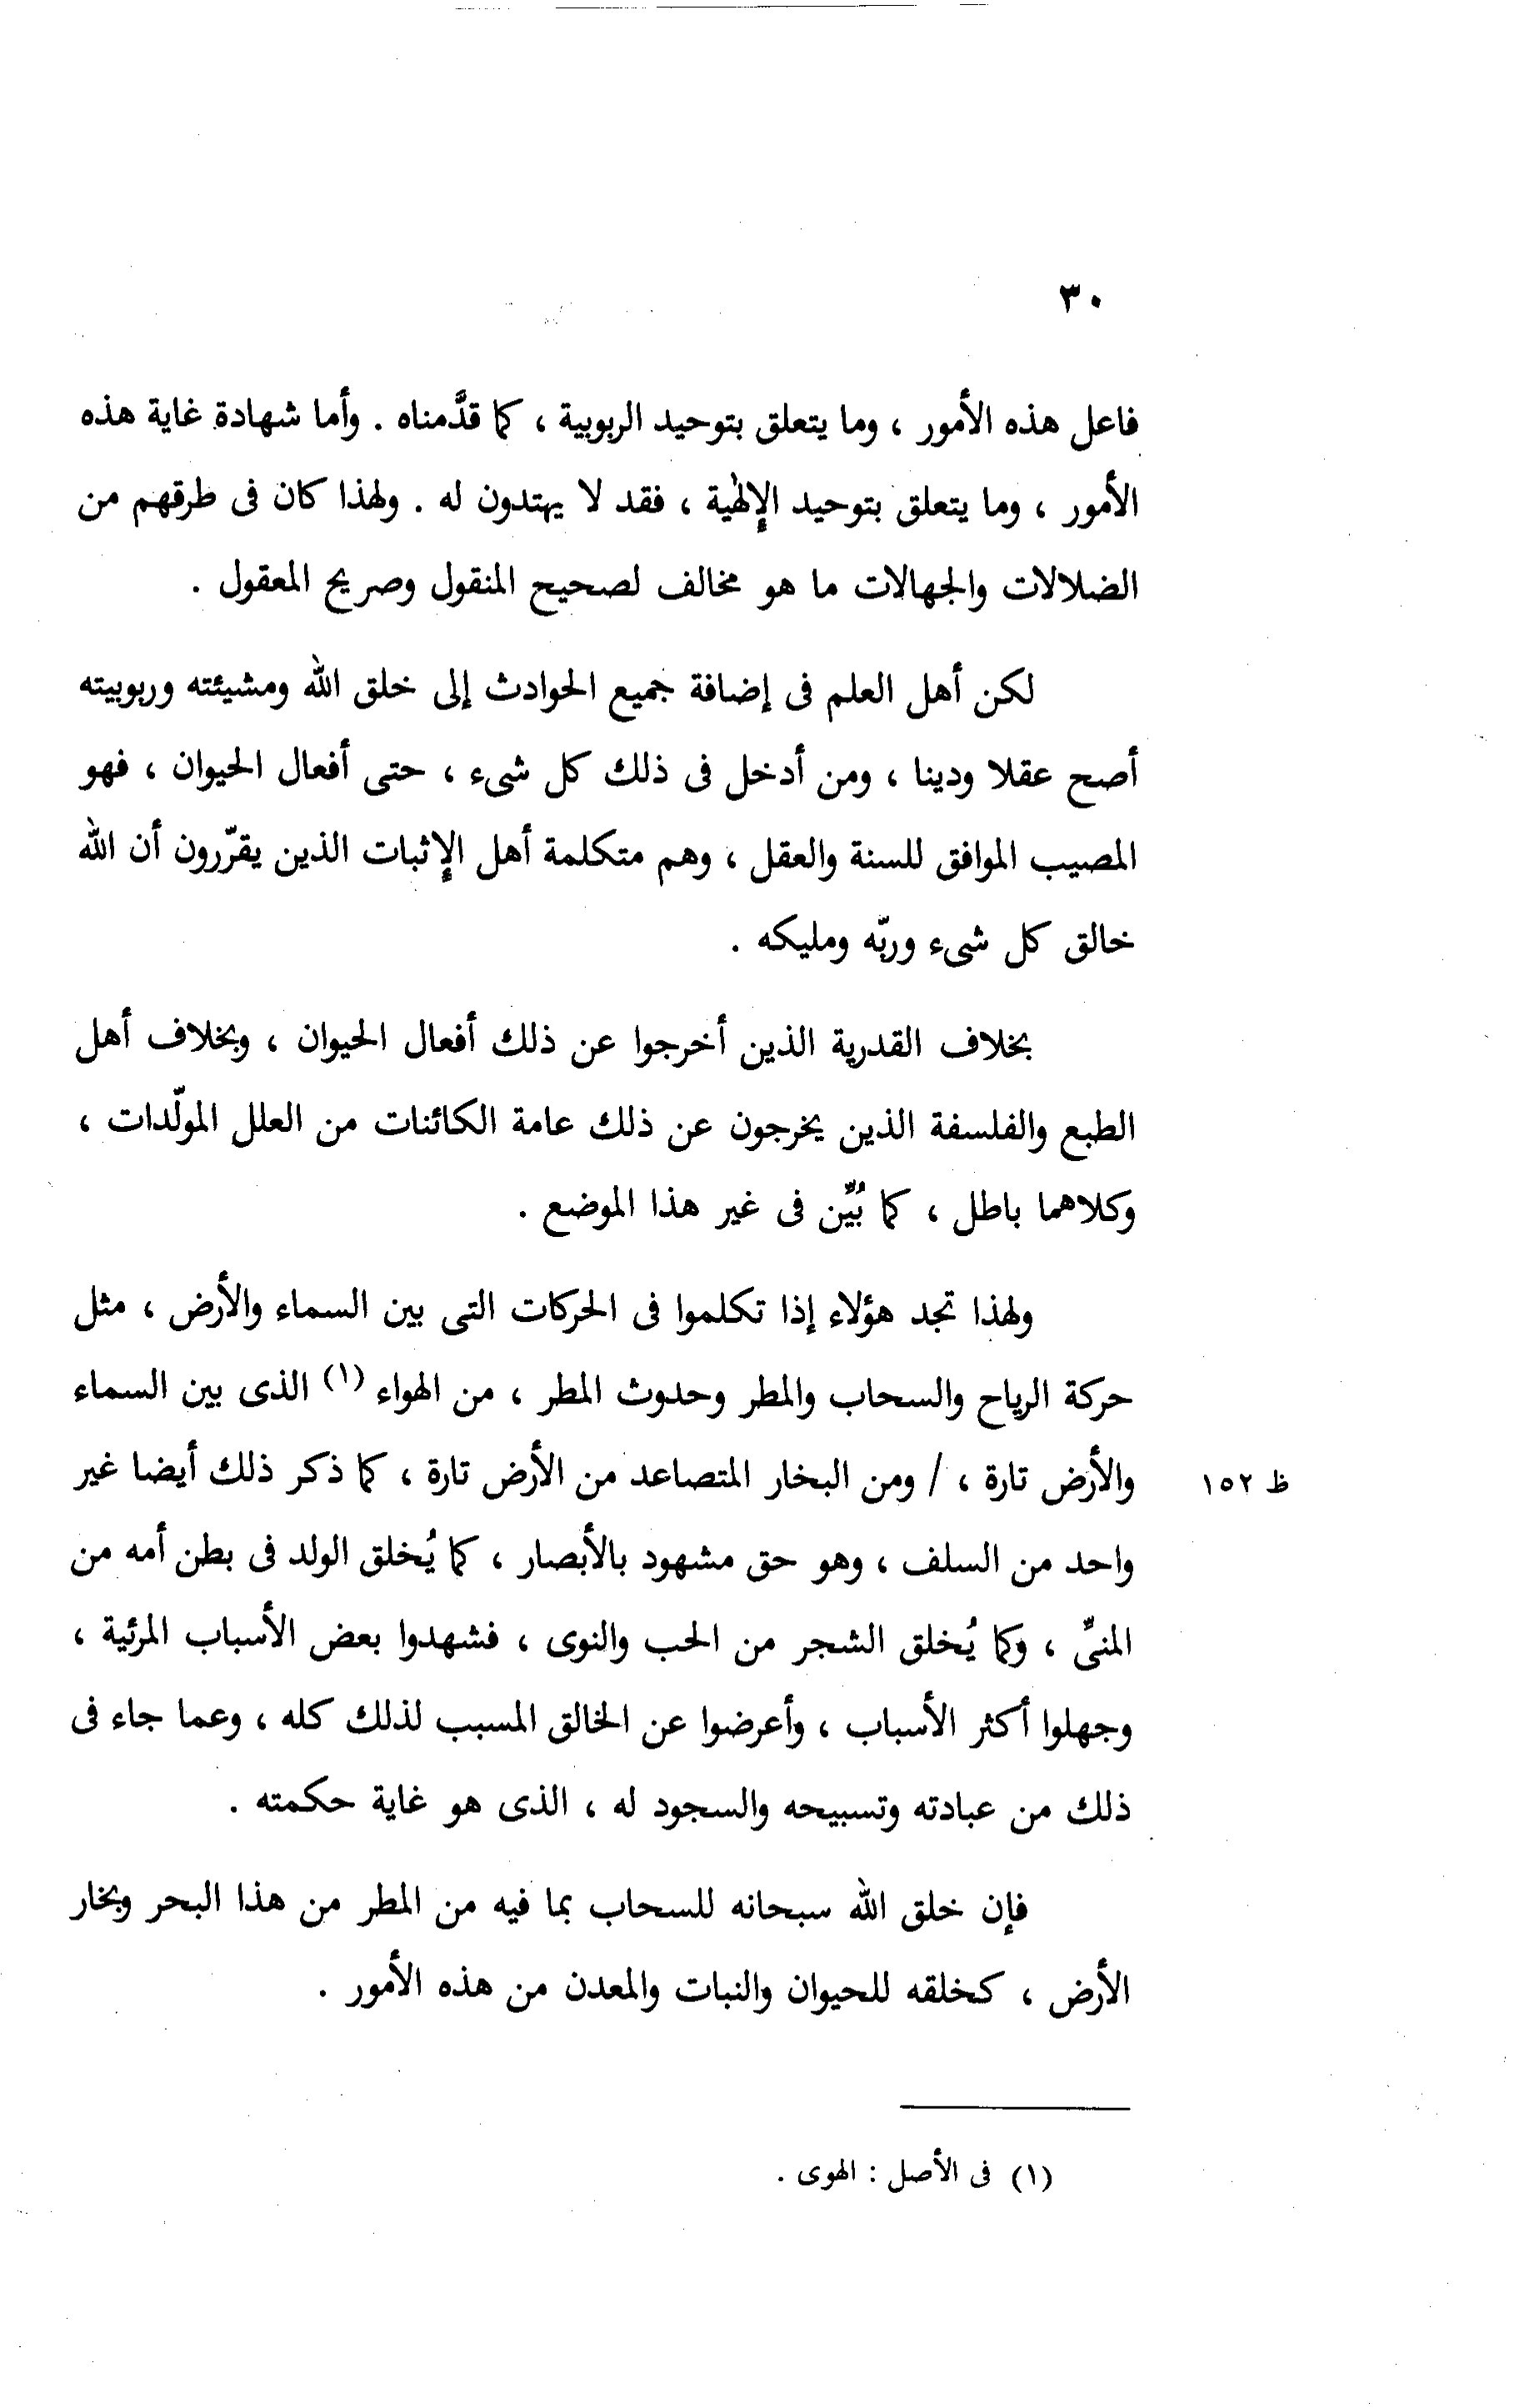 ٣٠
فاعل هذه الأمور ، وما يتعلق بتوحيد الربوبية ، كما قدَّمناه . وأما شهادة غاية هذه
الأمور ، وما يتعلق بتوحيد الإلهية ، فقد لا يهتدون له . ولهذا كان فى طرقهم من
الضلالات والجهالات ما هو مخالف لصحيح المنقول وصريح المعقول .
لكن أهل العلم فى إضافة جميع الحوادث إلى خلق الله ومشيئته وربوبيته
أصح عقلا ودينا ، ومن أدخل فى ذلك كل شىء ، حتى أفعال الحيوان ، فهو
المصيب الموافق للسنة والعقل ، وهم متكلمة أهل الإثبات الذين يقرّرون أن الله
خالق كل شىء وربّه ومليكه .
بخلاف القدرية الذين أخرجوا عن ذلك أفعال الحيوان ، وبخلاف أهل
الطبع والفلسفة الذين يخرجون عن ذلك عامة الكائنات من العلل المولّدات ،
وكلاهما باطل ، كما بُيِّن فى غير هذا الموضع .
ولهذا تجد هؤلاء إذا تكلموا فى الحركات التى بين السماء والأرض ، مثل
حركة الرياح والسحاب والمطر وحدوث المطر ، من الهواء (١) الذى بين السماء
والأرض تارة ، / ومن البخار المتصاعد من الأرض تارة ، كما ذكر ذلك أيضا غير
ظ ١٥٢
واحد من السلف ، وهو حق مشهود بالأبصار ، كما يُخلق الولد فى بطن أمه من
المنىِّ ، وكما يُخلق الشجر من الحب والنوى ، فشهدوا بعض الأسباب المرئية ،
وجهلوا أكثر الأسباب ، وأعرضوا عن الخالق المسبب لذلك كله ، وعما جاء فى
ذلك من عبادته وتسبيحه والسجود له ، الذى هو غاية حكمته .
فإن خلق الله سبحانه للسحاب بما فيه من المطر من هذا البحر وبخار
الأرض ، كخلقه للحيوان والنبات والمعدن من هذه الأمور .
(١) فى الأصل : الهوى .